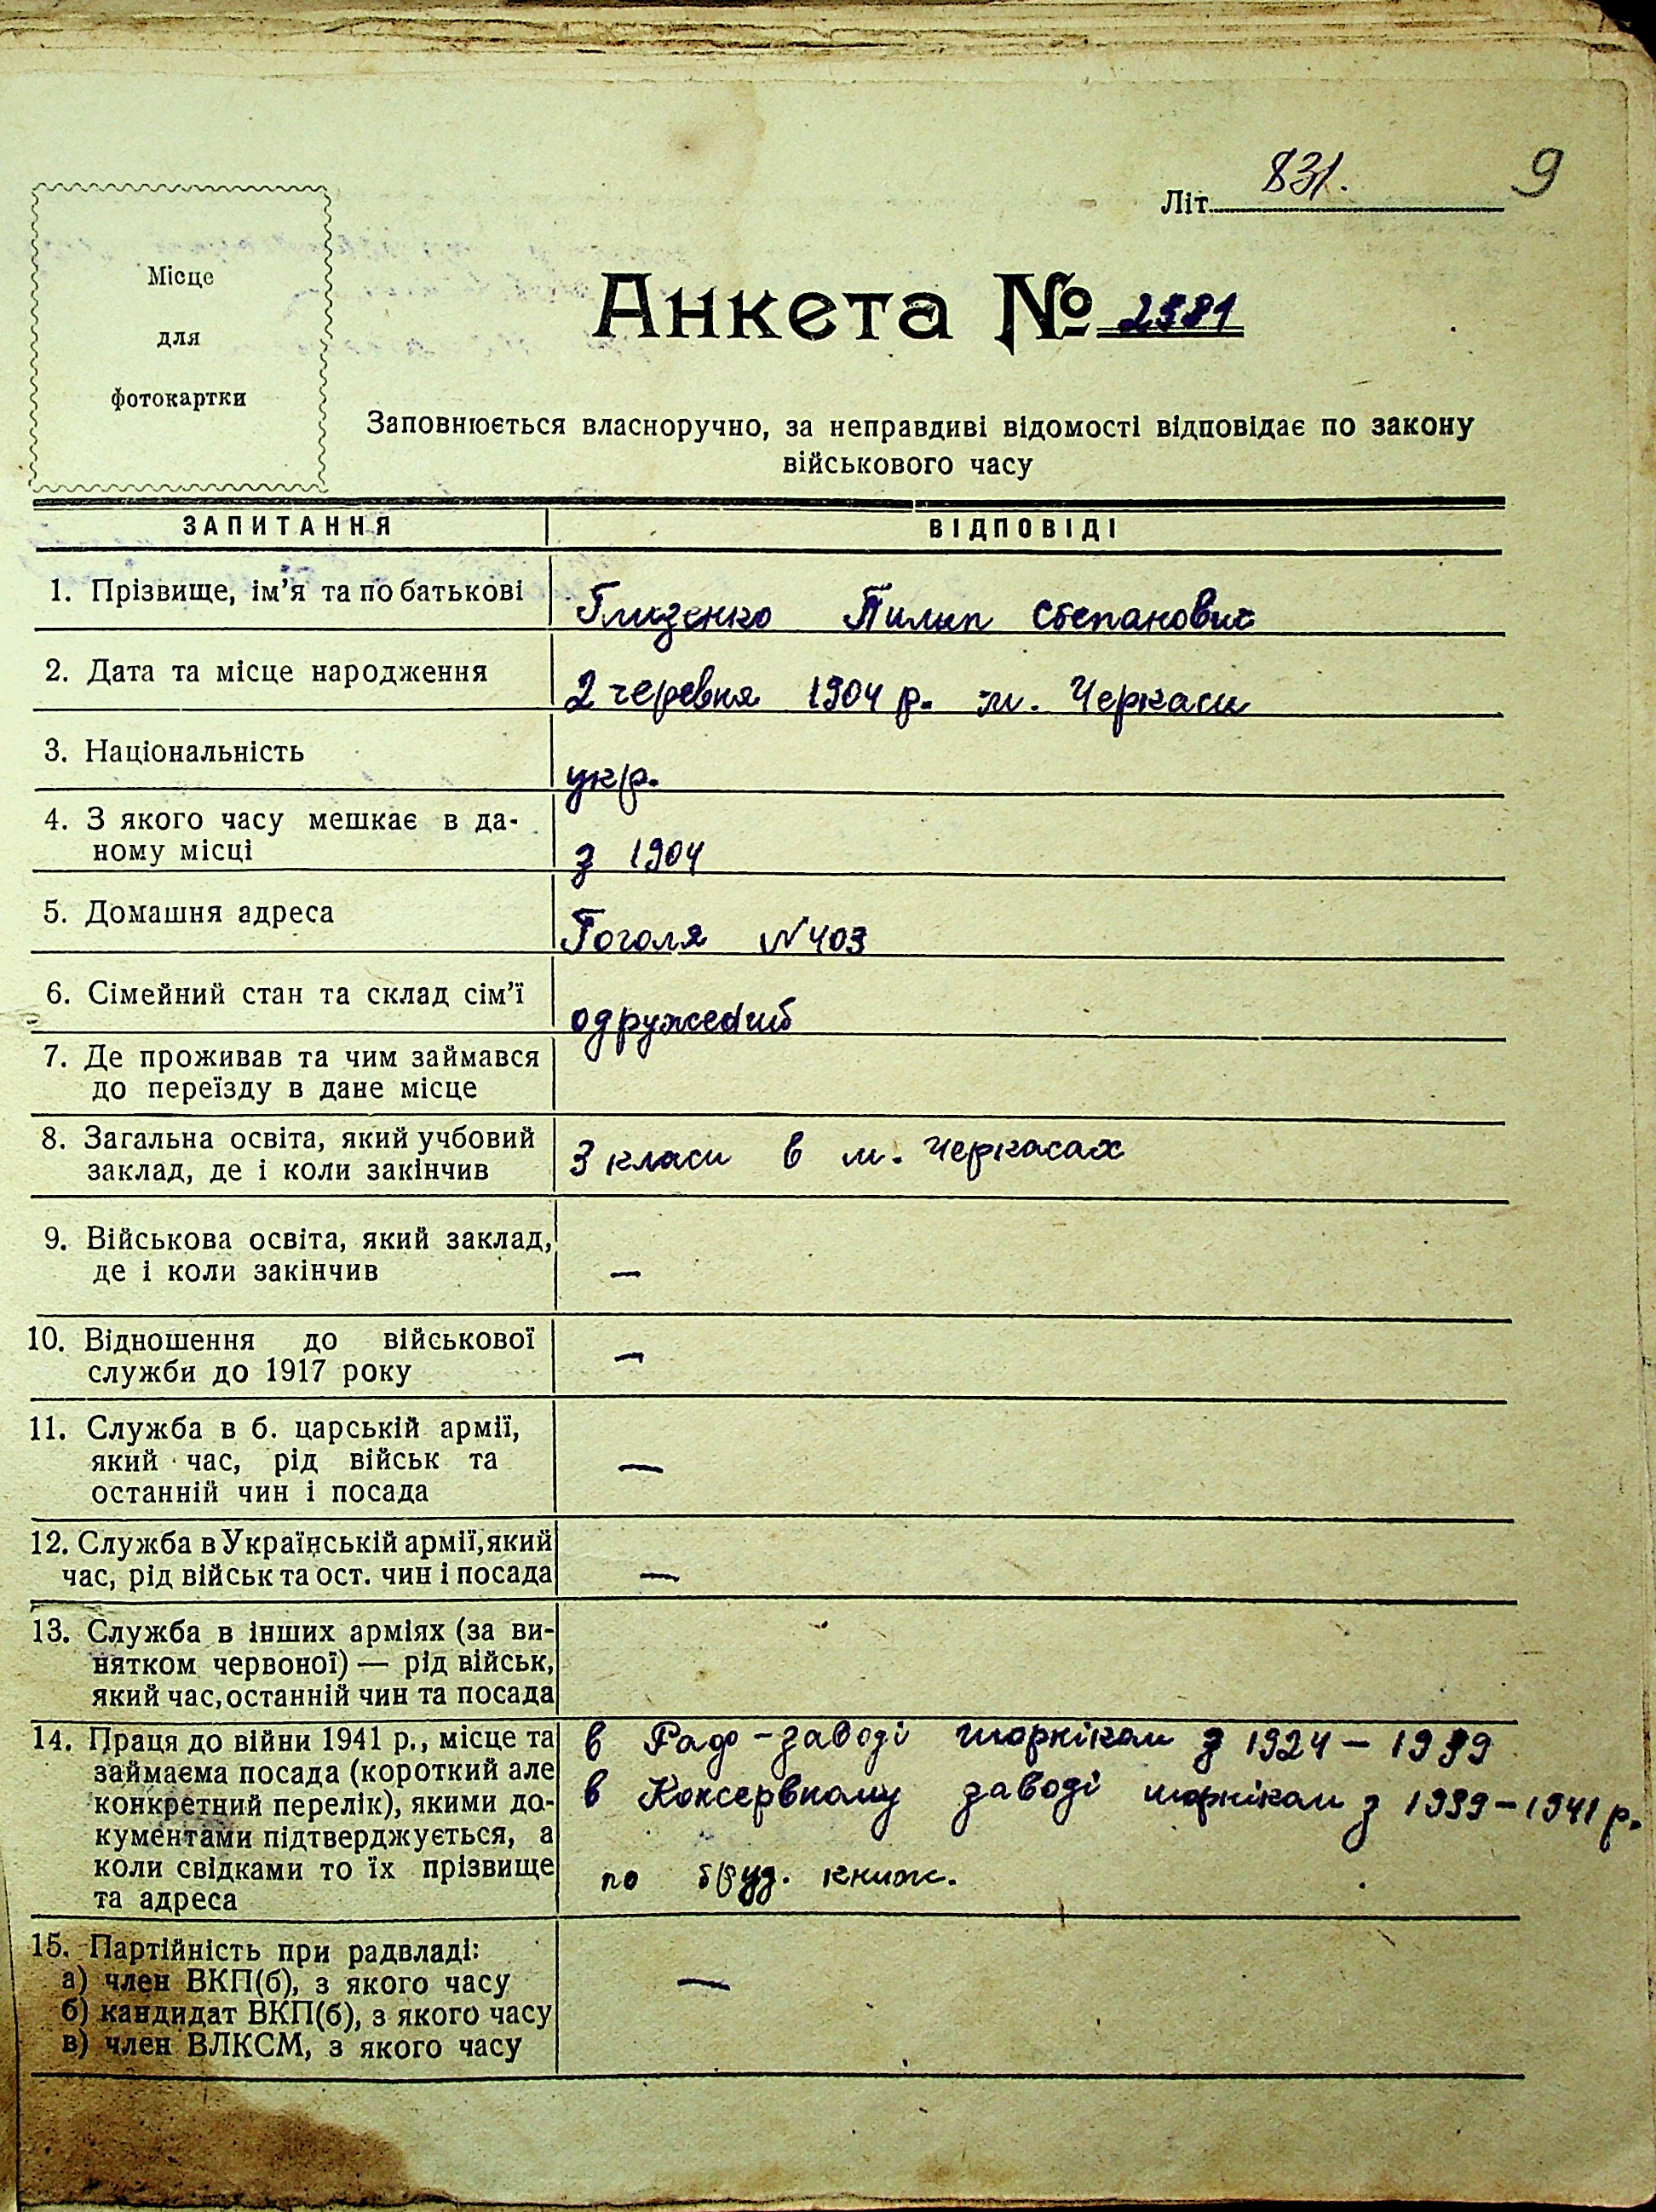 Літ. 831. 9
Місце
для
фотокартки
Анкета № 2981
Заповнюється власноручно, за неправдиві відомості відповідає по закону
військового часу
ЗАПИТАННЯ ВІДПОВІДІ
1. Прізвище, ім'я та по батькові Глизенко Пилип Степанович
2. Дата та місце народження 2 червня 1904 р. м. Черкаси
3. Національність укр.
4. З якого часу мешкає в да-
ному місці з 1904
5. Домашня адреса Гоголя №403
6. Сімейний стан та склад сім'ї одружений
7. Де проживав та чим займався
до переїзду в дане місце
8. Загальна освіта, який учбовий
заклад, де і коли закінчив 3 класи в м. Черкасах
9. Військова освіта, який заклад,
де і коли закінчив —
10. Відношення до військової
служби до 1917 року —
11. Служба в б. царській армії,
який час, рід військ та
останній чин і посада —
12. Служба в Українській армії, який
час, рід військ та ост. чин і посада —
13. Служба в інших арміях (за ви-
нятком червоної) — рід військ,
який час, останній чин та посада
14. Праця до війни 1941 р., місце та в Раф-заводі шорніком з 1924 – 1939
займаєма посада (короткий але
конкретний перелік), якими до- в Консервному заводі шорніком з 1939–1941 р.
кументами підтверджується, а
коли свідками то їх прізвище по труд. книж.
та адреса
15. Партійність при радвладі:
а) член ВКП(б), з якого часу —
б) кандидат ВКП(б), з якого часу
в) член ВЛКСМ, з якого часу